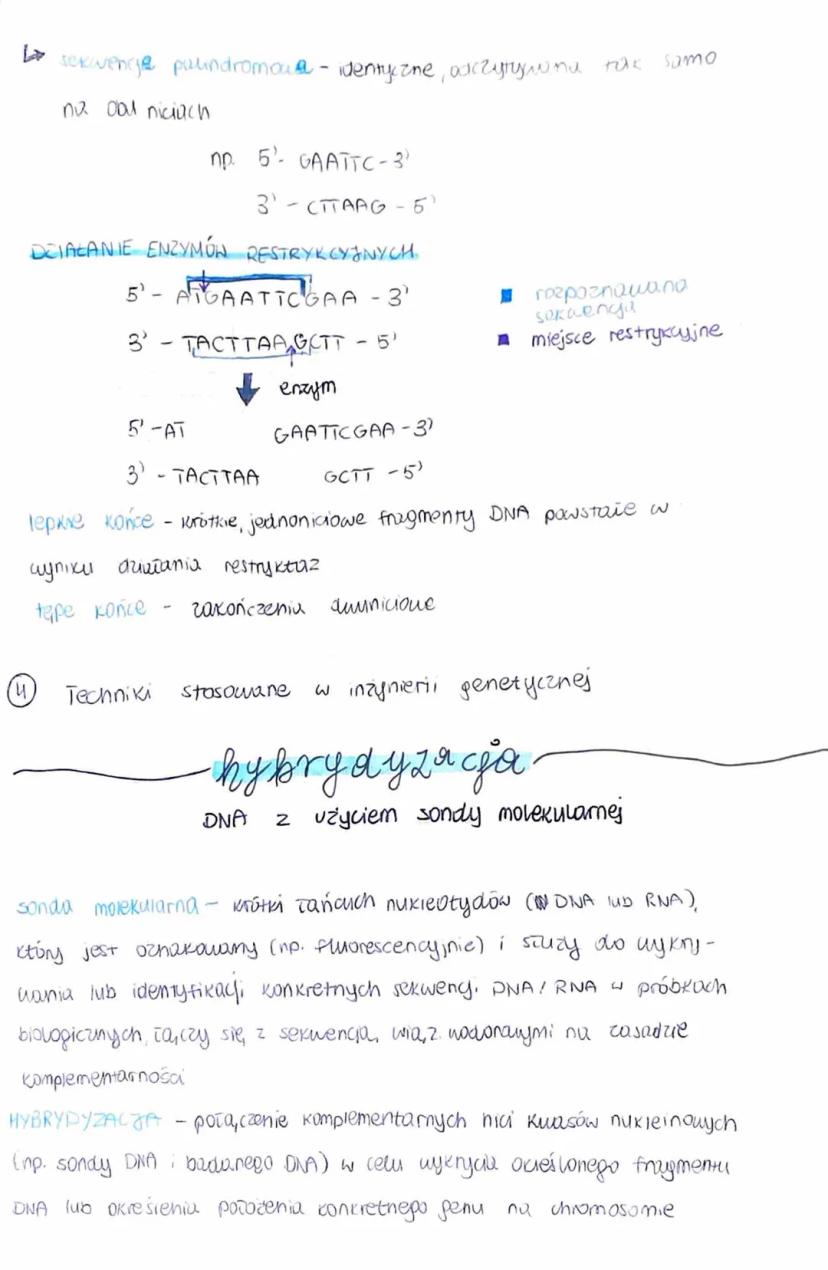 ↳ sekwencja palindromowa - identyczne, odczytywana tak samo
na obu niciach
np. 5'- GAATTC-3'
3' - CTTAAG - 5'
DZIAŁANIE ENZYMÓW RESTRYKCYJNYCH
5' - ATGAATTCGAA - 3'
3' - TACTTAAGCTT - 5'
rozpoznawana
sekwencja
miejsce restrykcyjne
enzym
5' -AT GAATTCGAA -3'
3' - TACTTAA GCTT -5'
lepkie końce - krótkie, jednoniciowe fragmenty DNA powstałe w
wyniku działania restryktaz
tępe końce - zakończenia dwuniciowe
4 Techniki stosowane w inżynierii genetycznej
hybrydyzacja
DNA z użyciem sondy molekularnej
sonda molekularna - krótki łańcuch nukleotydów (DNA lub RNA),
który jest oznakowany (np. fluorescencyjnie) i służy do wykry-
wania lub identyfikacji konkretnych sekwencji DNA/RNA w próbkach
biologicznych, łączy się z sekwencją wiąz. wodorowymi na zasadzie
komplementarności
HYBRYDYZACJA - połączenie komplementarnych nici kwasów nukleinowych
(np. sondy DNA i badanego DNA) w celu wykrycia określonego fragmentu
DNA lub określenia położenia konkretnego genu na chromosomie